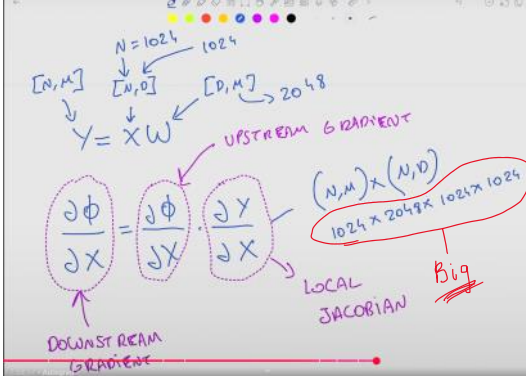 N=1024 1024
[N,M] [N,D] [D,M] → 2048
Y = XW
UPSTREAM GRADIENT
∂ϕ/∂X = ∂ϕ/∂X · ∂Y/∂X
(N,M) × (N,D)
1024 × 2048 × 1024 × 1024
Big
LOCAL
JACOBIAN
DOWNSTREAM
GRADIENT